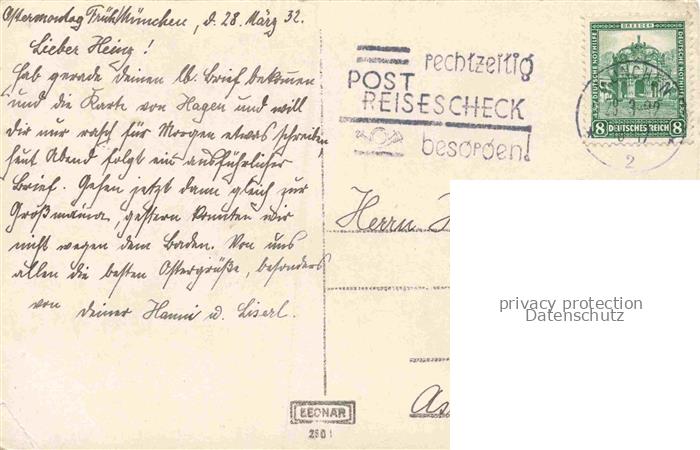 Ostermontag Früh/München, d. 28. März 32.
Lieber Heinz!
Hab gerade deinen lb. Brief bekommen
und die Karte von Hagen und will
dir nur rasch für Morgen etwas schreiben,
heut Abend folgt ein ausführlicher
Brief. Gehen jetzt dann gleich zur
Großmama, gestern konnten wir
nicht wegen dem Baden. Von uns
allen die besten Ostergrüße, besonders
von deiner Hanni u. Liserl.
rechtzeitig
POST
REISESCHECK
besorgen!
DRESDEN
DEUTSCHE NOTHILFE
DEUTSCHE NOTHILFE
8 DEUTSCHES REICH 8
MÜNCHEN
2
Herrn
privacy protection
Datenschutz
As
LEONAR